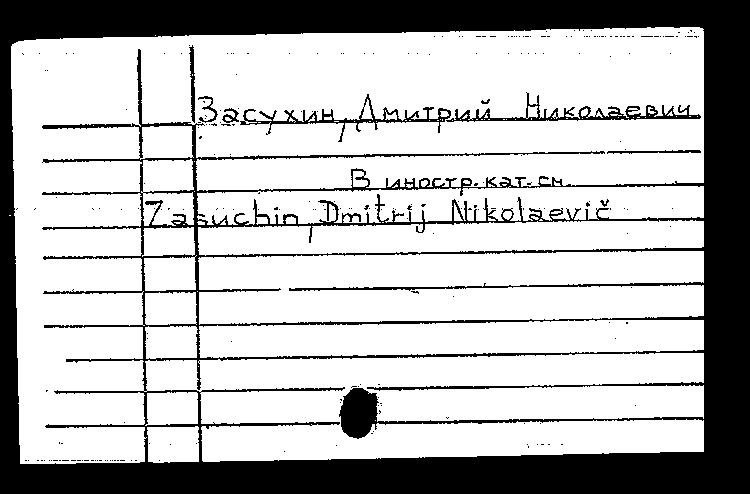 Засухин, Дмитрий Николаевич
В иностр. кат. см.
Zasuchin, Dmitrij Nikolaevič